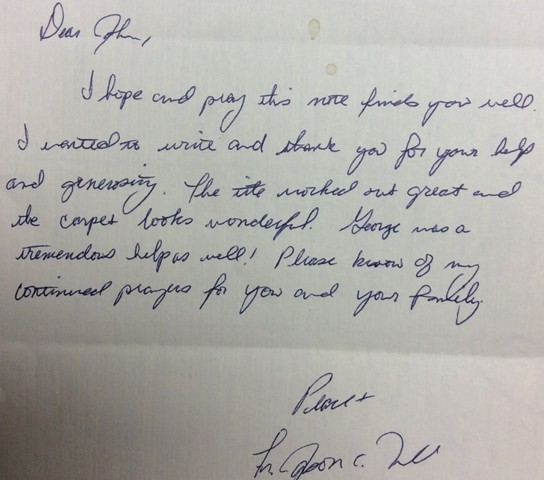 Dear John,
I hope and pray this note finds you well.
I wanted to write and thank you for your help
and generosity. The tile worked out great and
the carpet looks wonderful. George was a
tremendous help as well! Please know of my
continued prayers for you and your family.
Peace +
Fr. Jason C.